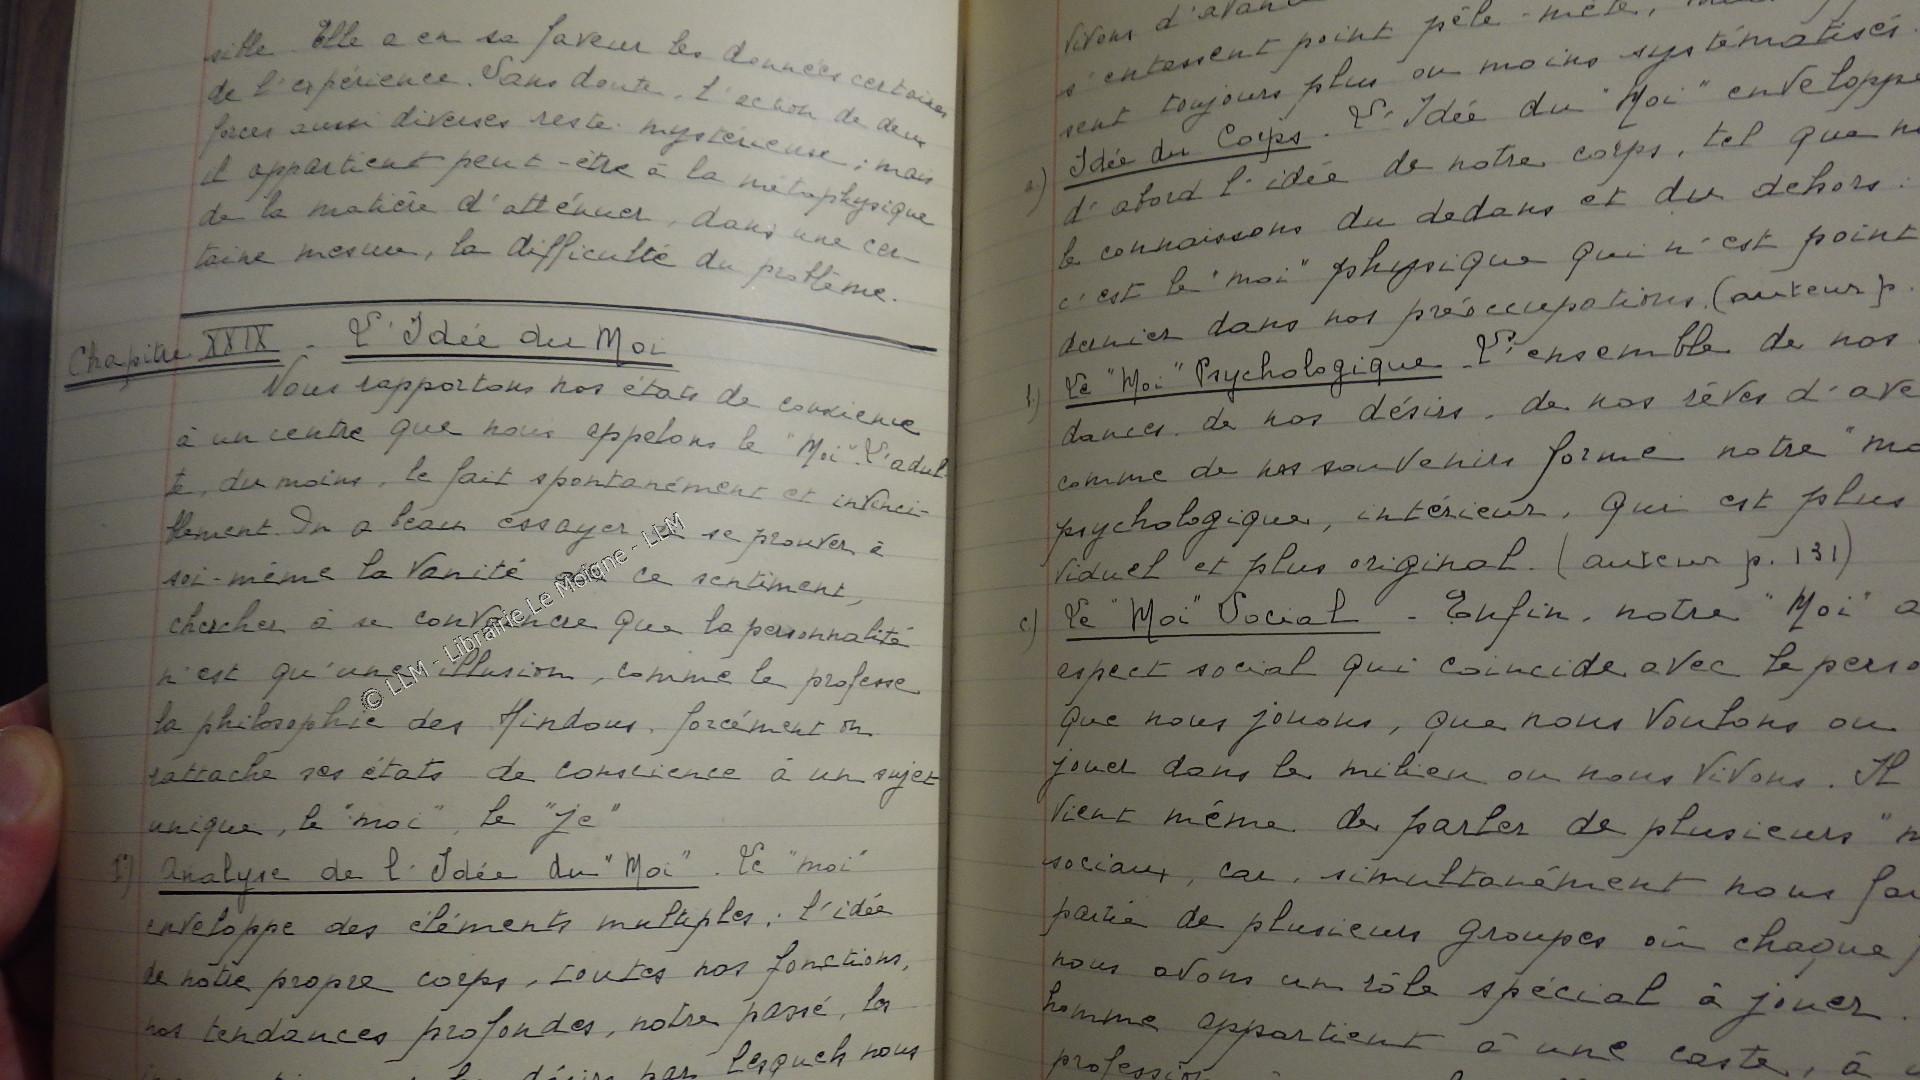 sible. Elle a en sa faveur les données certaines
de l'expérience. Sans doute, l'action de deux
forces aussi diverses reste mystérieuse ; mais
il appartient peut-être à la métaphysique
de la matière d'atténuer, dans une cer-
taine mesure, la difficulté du problème.
Chapitre XXIX - L'Idée du Moi
Nous rapportons nos états de conscience
à un centre que nous appelons le "Moi". L'adul-
te, du moins, le fait spontanément et invinci-
blement. On a beau essayer de se prouver à
soi-même la vanité de ce sentiment,
chercher à se convaincre que la personnalité
n'est qu'une illusion, comme le professe
la philosophie des Hindous, forcément on
rattache ses états de conscience à un sujet
unique, le "moi", le "je"
1°) Analyse de l'Idée du "Moi". Le "moi"
enveloppe des éléments multiples : l'idée
de notre propre corps, toutes nos fonctions,
nos tendances profondes, notre passé, les
désirs par lesquels nous
vivons d'avan
s'entassent point pêle-mêle,
sent toujours plus ou moins systématisés.
a) Idée du Corps. L'Idée du "Moi" enveloppe
d'abord l'idée de notre corps, tel que no
le connaissons du dedans et du dehors :
c'est le "moi" physique qui n'est point
dernier dans nos préoccupations. (auteur p.
b) Le "Moi" Psychologique - L'ensemble de nos
dances, de nos désirs, de nos rêves d'ave
comme de nos souvenirs forme notre "mo
psychologique, intérieur, qui est plus
viduel et plus original. (auteur p. 131)
c) Le "Moi" Social - Enfin, notre "Moi" a
aspect social qui coincide avec le perso
que nous jouons, que nous voulons ou
jouer dans le milieu ou nous vivons. Il
vient même de parler de plusieurs "m
sociaux, car, simultanément nous fai
partie de plusieurs groupes où chaque f
nous avons un rôle spécial à jouer.
homme appartient à une caste, à u
profession
© LLM - Librairie Le Moigne - LLM